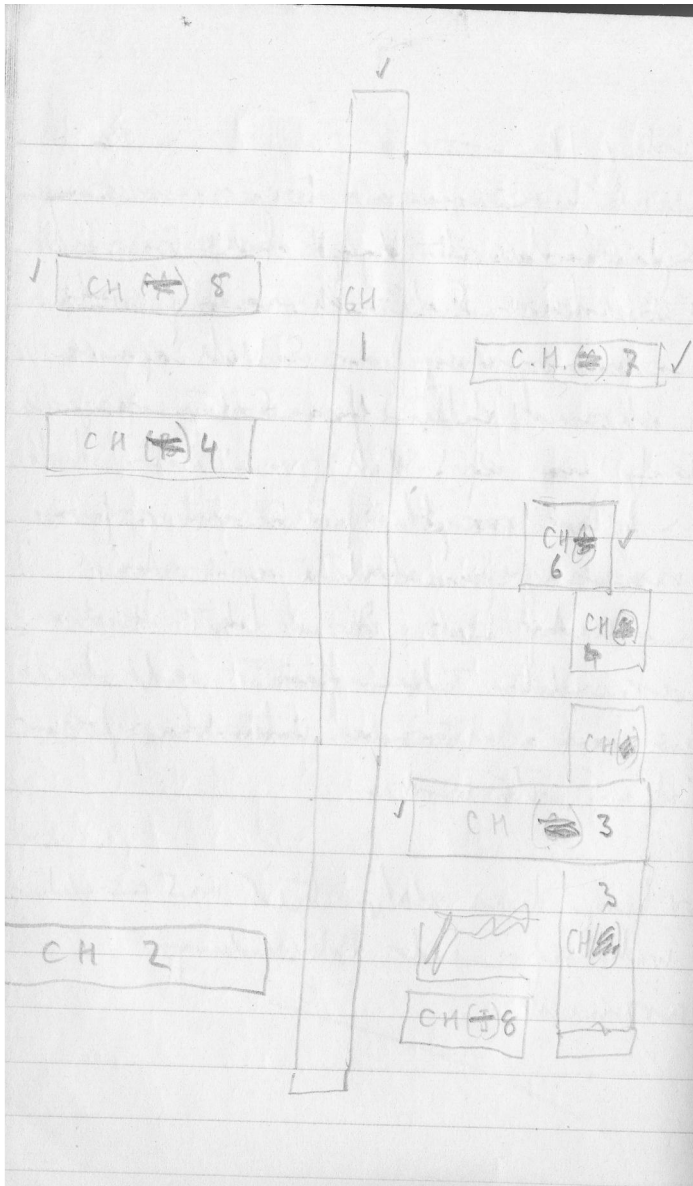 CH 5
GH
1
C.H. 7
CH 4
CH
6
CH
4
CH
CH 3
3
CH
CH 2
CH (I) 8